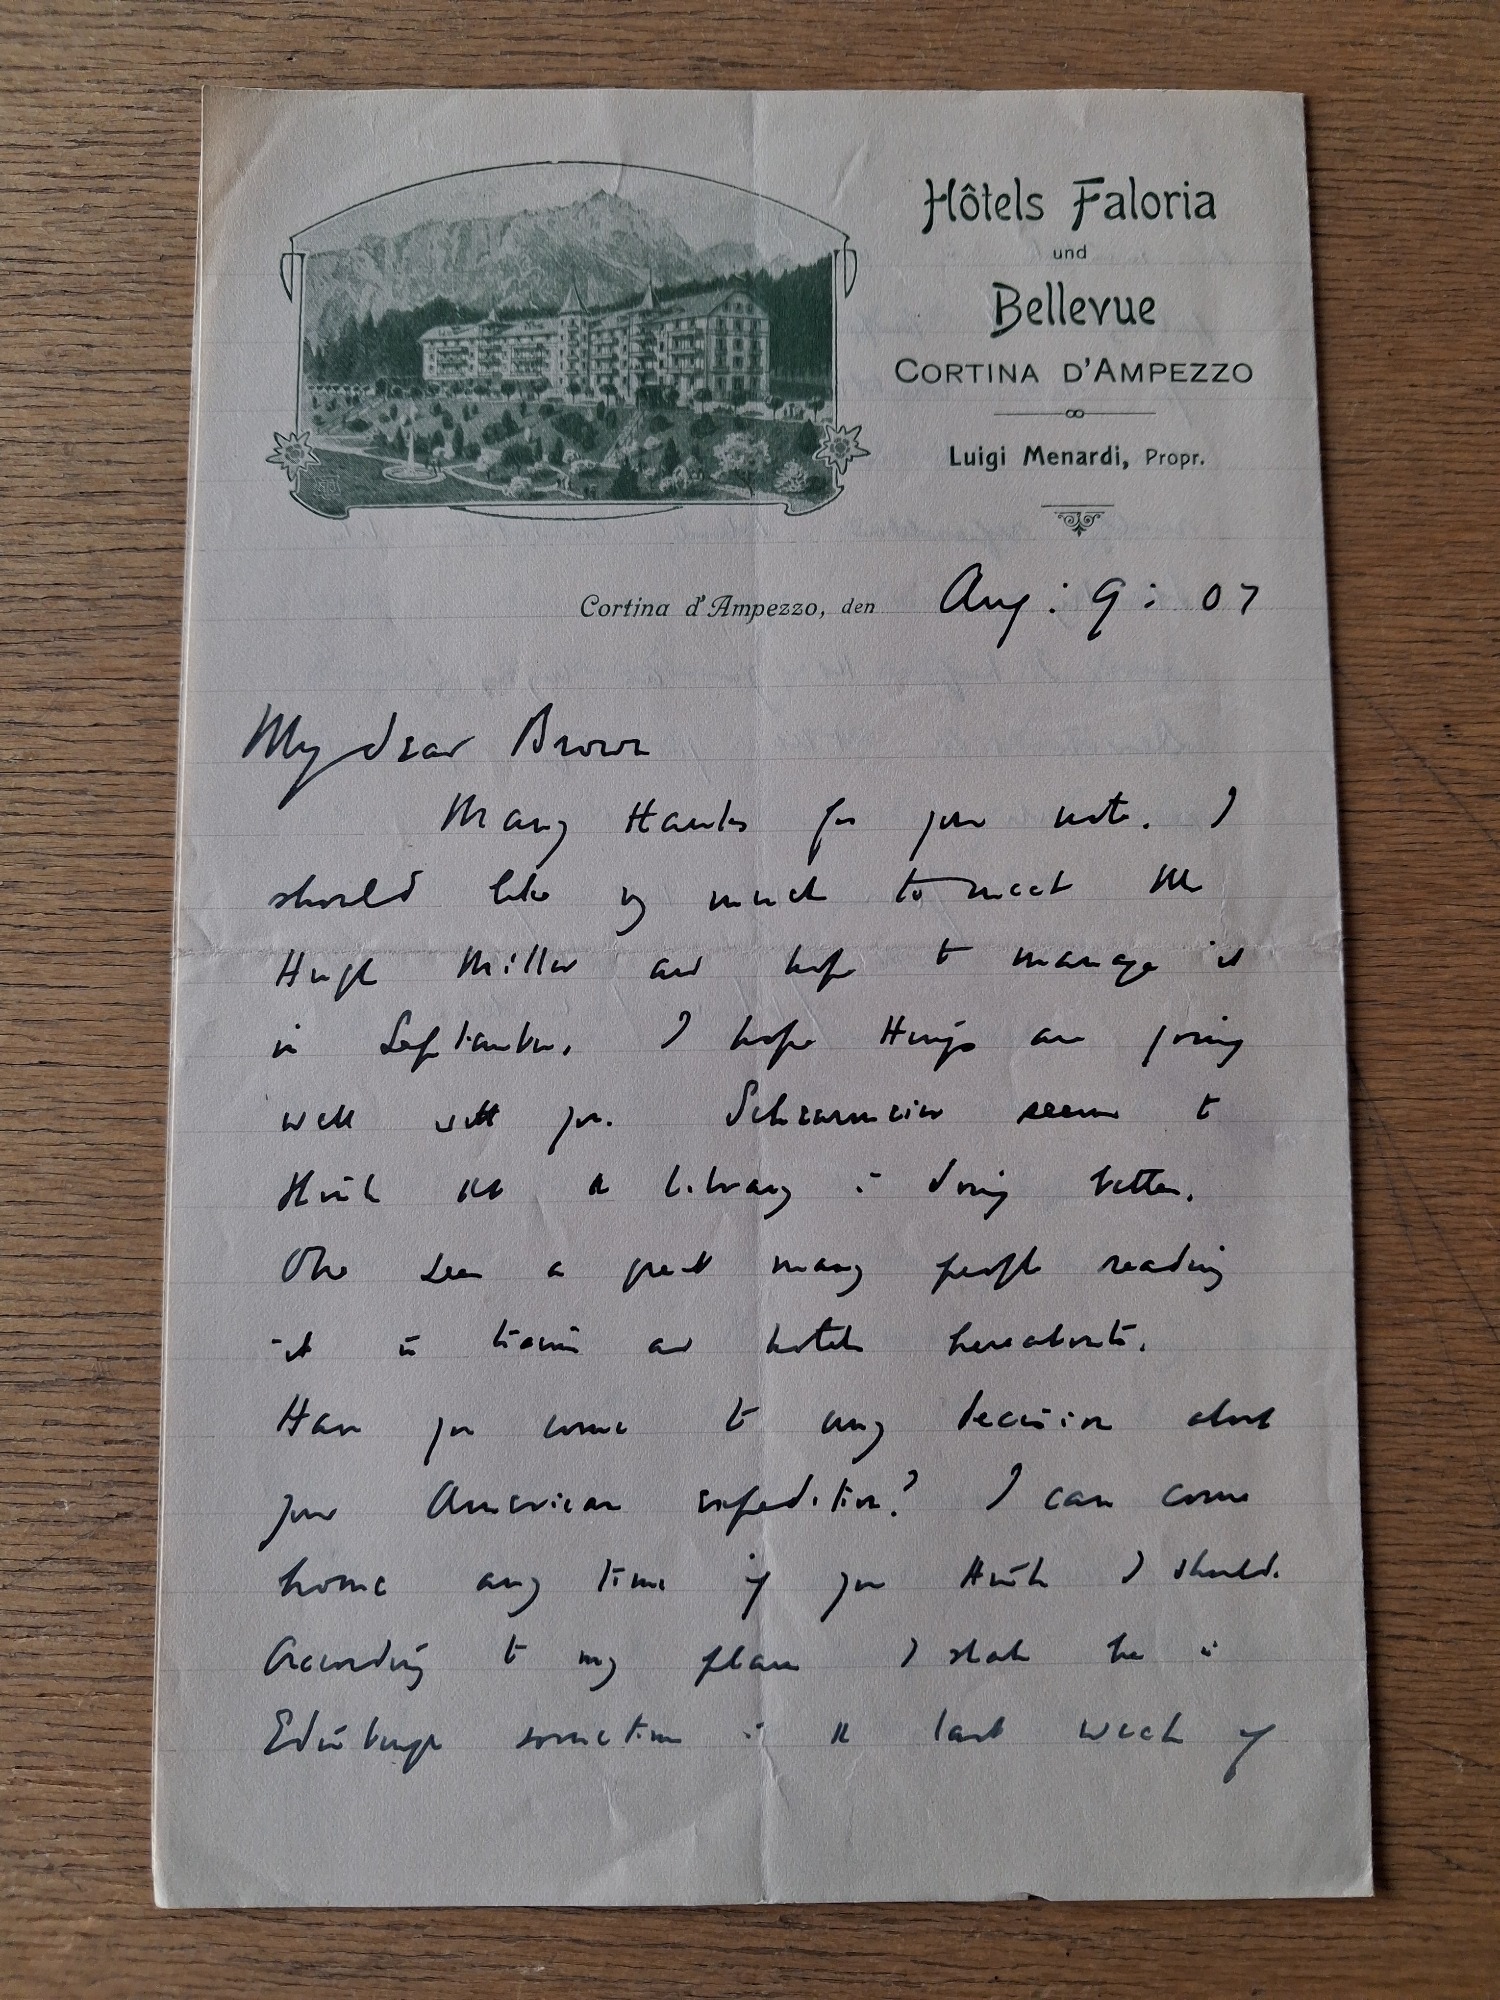 Hôtels Faloria
und
Bellevue
CORTINA D'AMPEZZO
Luigi Menardi, Propr.
Cortina d'Ampezzo, den Aug: 9: 07
My dear Brown
Many thanks for your note. I
should like vy much to meet
Hugh Miller and hope to manage it
in September. I hope things are going
well with you. seems to
think the library is doing better.
One sees a great many people reading
it in trains and hotels hereabouts.
Have you come to any decision about
your American expedition? I can come
home any time if you think I should.
According to my plans I shall be in
Edinburgh sometime in the last week of